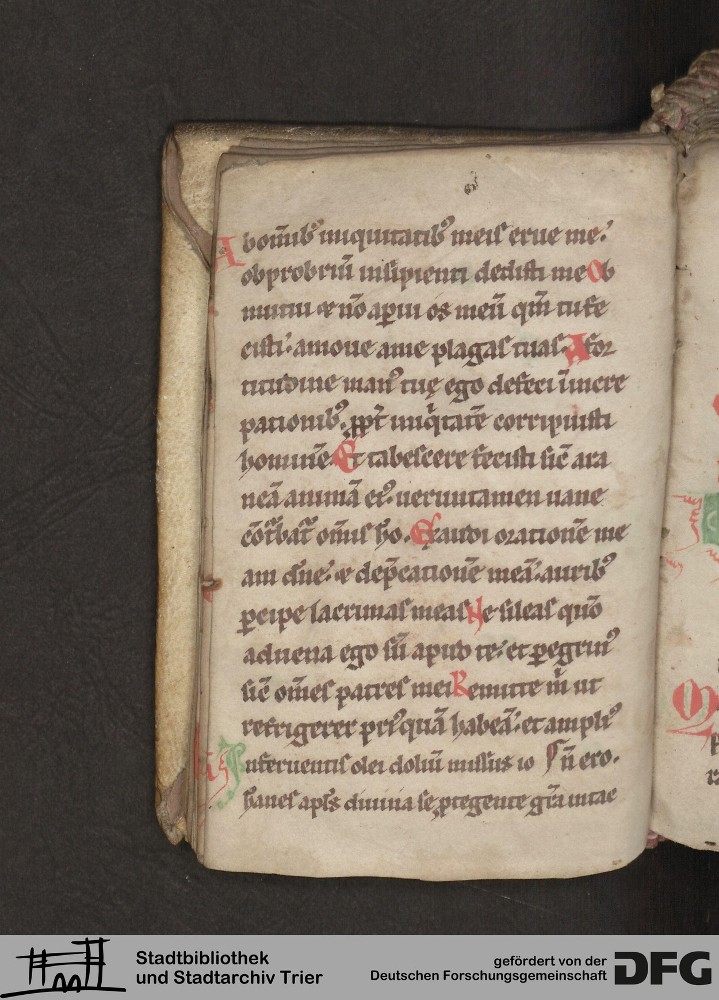 Abom̄ib᷒ iniquitatib᷒ meis erue me.
obprobriū insipienti dedisti me Ob
mutui ⁊ nō aꝑui os meū qm̄ tu fe
cisti. amoue a me plagas tuas. A for
titudine man᷒ tuę ego defeci ī incre
pationib᷒. ꝓpt̄ iniq̄tatē corripuisti
hominē Et tabescere fecisti sic̄ ara
neā animā ei᷒. ueruntamen uane
cōt̄bat᷑ om̄is hō. Exaudi orationē me
am dn̄e. ⁊ dep̄cationē meā. aurib᷒
ꝑcipe lacrimas meas Ne sileas quō
aduena ego sū apud te. et ꝑegrin᷒
sic̄ om̄es patres mei Remitte m̄ ut
refrigerer pri᷒quā habeā. et ampli᷒
n̄ ero.
Inferuentis olei doliū missus io
hanes apl̄s diuina se ꝓtegente gr̄a intac
Stadtbibliothek
und Stadtarchiv Trier
gefördert von der
Deutschen Forschungsgemeinschaft
DFG